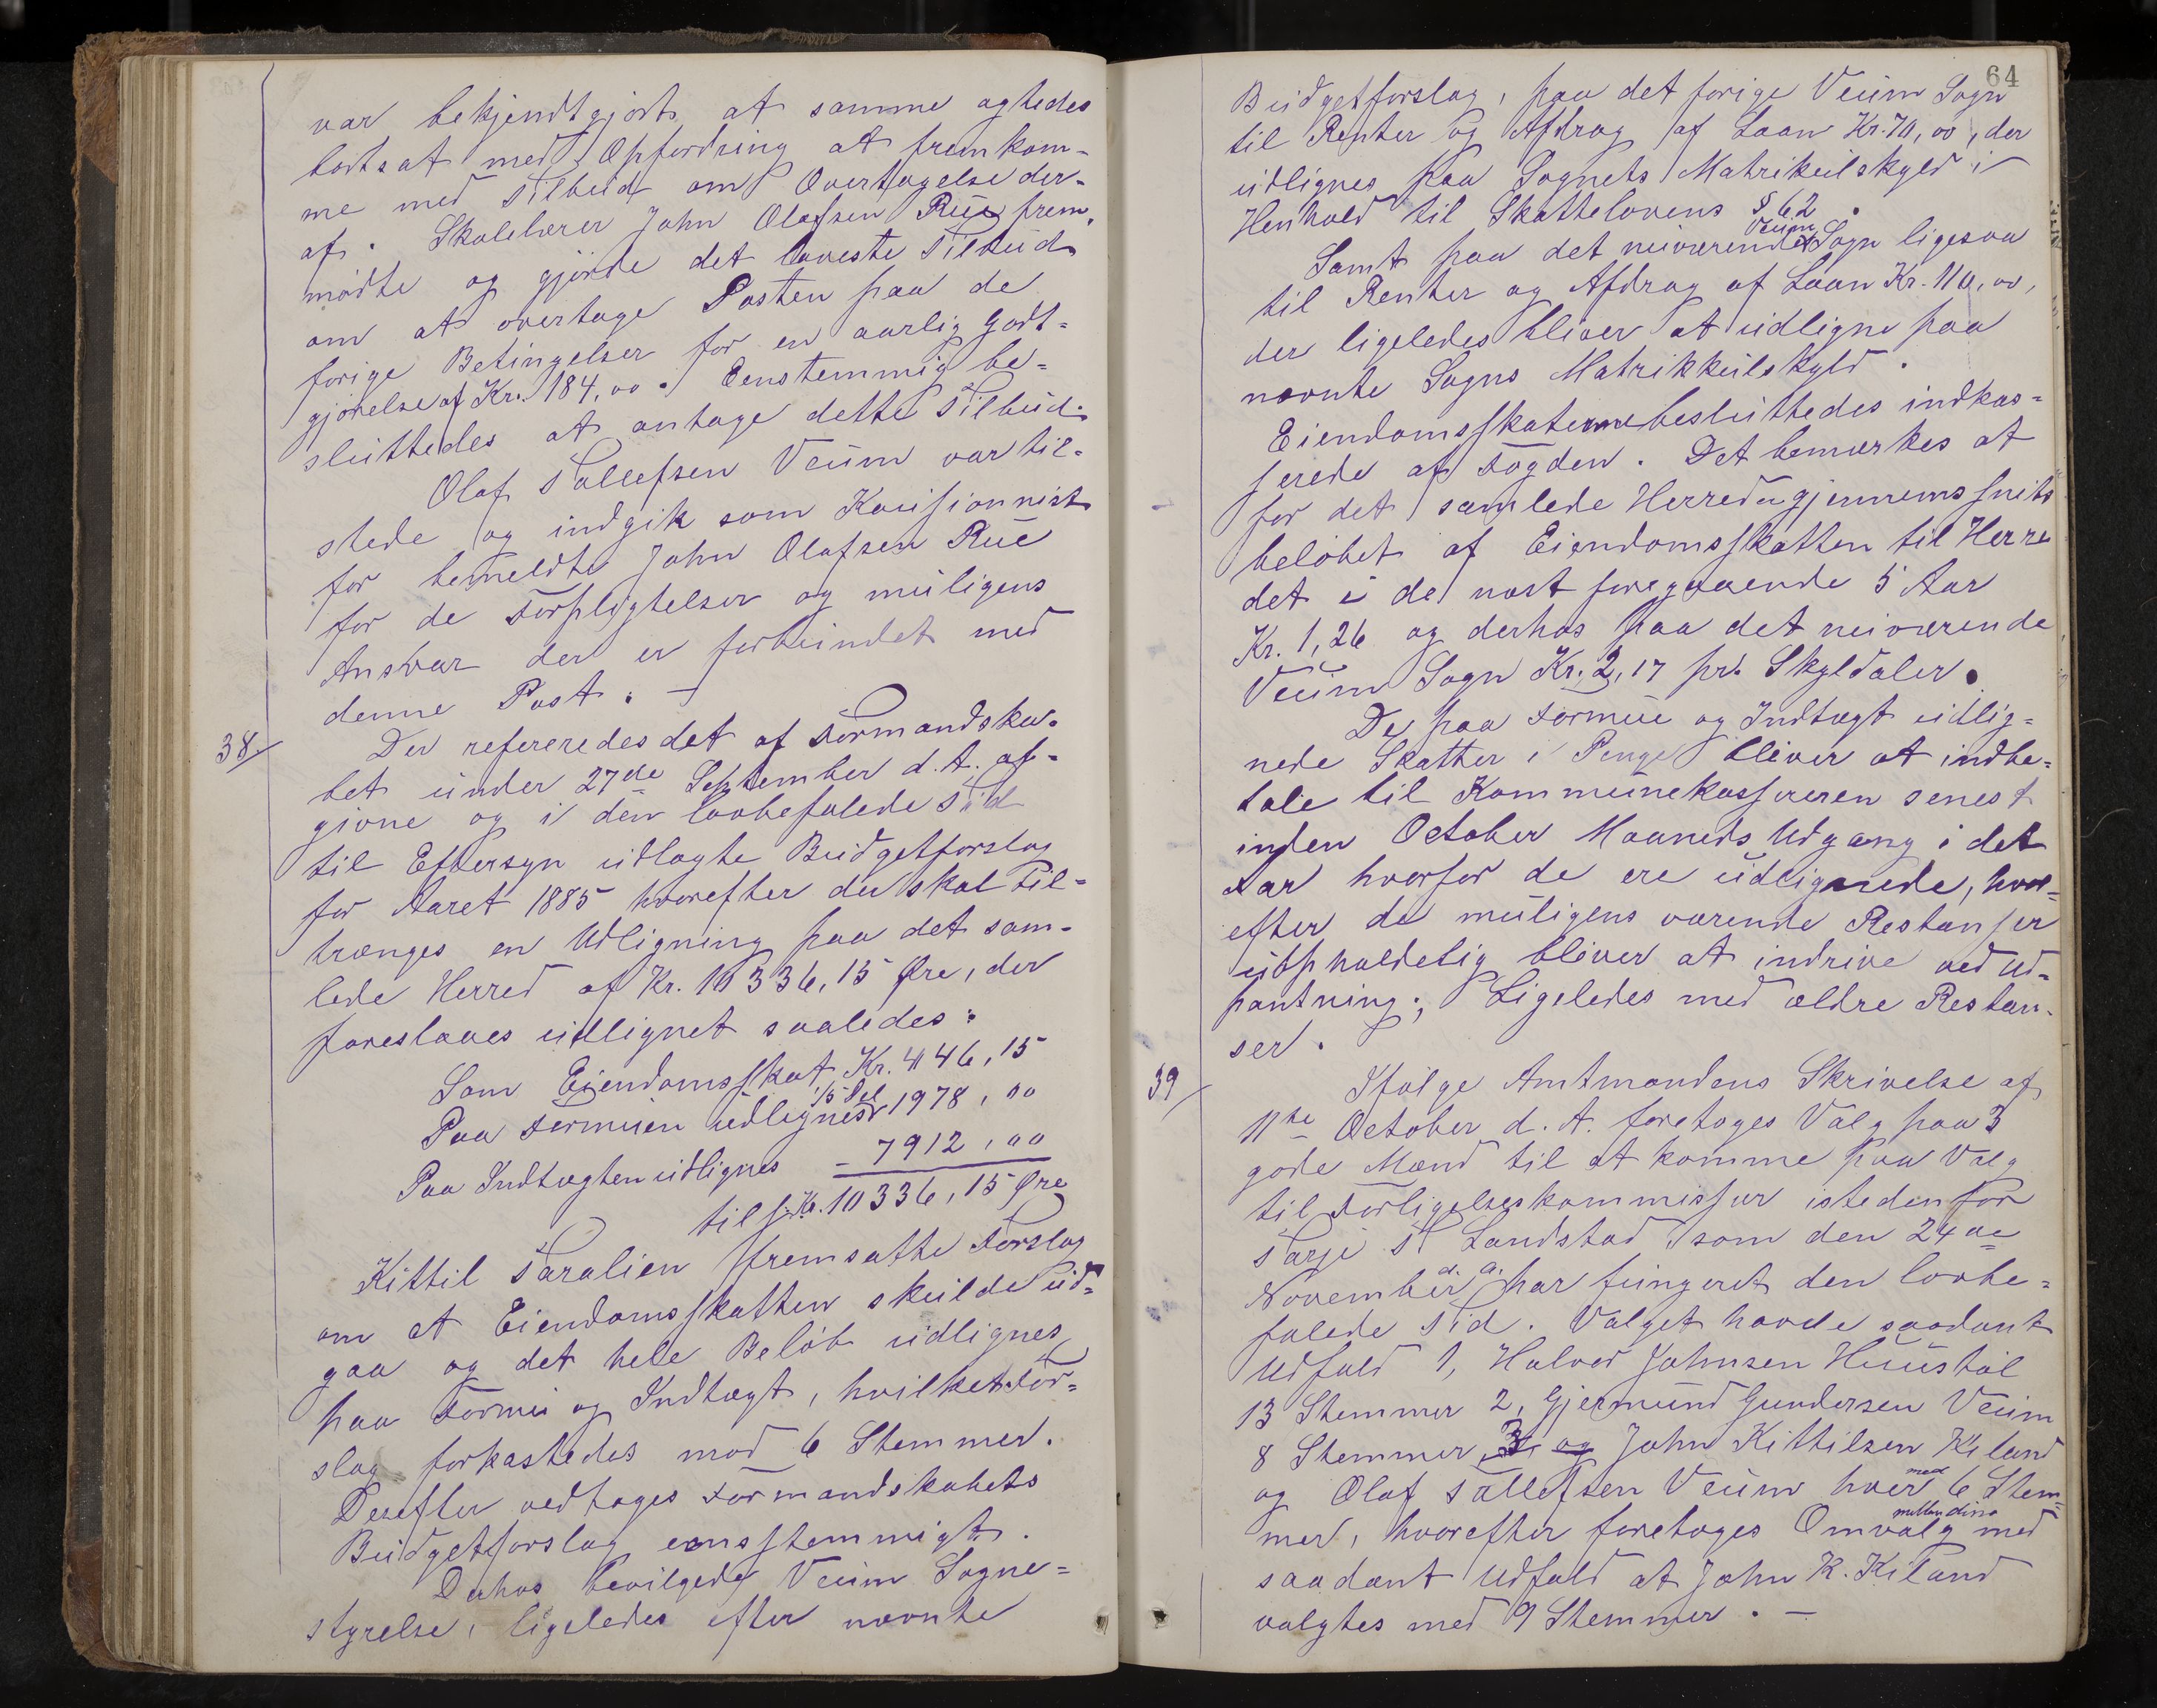 var bekjendtgjort at samme agtedes
bortsat med Opfordring at fremkom-
me med Tilbud om Overtagelse der-
af. Skolelærer John Olafsen Rue frem.
mødte og gjorde det laveste Tilbud
om at overtage Posten paa de
forige Betingelser for en aarlig Godt-
gjørelse af Kr. 184,00. Eenstemmig be-
sluttedes at antage dette Tilbud.
Olaf Tallefsen Veum var til-
stede og indgik som Kausionnist
for bemeldte John Olafsen Rue
for de Forpligtelser og muligens
Ansvar der er forbundet med
denne Post. –
38/
Der refereredes det af Formandska-
bet under 27de September d. A. af-
givne og i den lovbefalede Tid
til Eftersyn udlagte Budgetforslag
for Aaret 1885 hvorefter der skal til-
trænges en Udligning paa det sam-
lede Herred af Kr. 10336,15 Øre, der
foreslaaes udlignet saaledes:
Som Eiendomsskat Kr. 446,15
Paa Formuen udlignes 1/5 Del 1978,00
Paa Indtægten udlignes – 7912,00
tils. Kr. 10336,15 Øre
Kittil Taralien fremsatte Forslag
om at Eiendomsskatten skulde ud-
gaa og det hele Beløb udlignes
paa Formu og Indtægt, hvilket For-
slag forkastedes mod 6 Stemmer.
Derefter vedtoges Formandskabets
Budgetforslag eensstemmigt.
Derhos bevilgede Veum Sogne-
styrelse, ligeledes efter nævnte
64
Budgetforslag, paa det forige Veum Sogn
til Renter og Afdrag af Laan Kr. 70,00, der
udlignes paa Sognets Matrikulskyld i
Henhold til Skattelovens § 62.
Samt paa det nuværende Veum Sogn ligesaa
til Renter og Afdrag af Laan Kr. 110,00,
der ligeledes bliver at udligne paa
nævnte Sogns Matrikkulskyld.
Eiendomsskaterne besluttedes indkas-
serede af Fogden. Det bemærkes at
for det samlede Herred er gjennemssnits
beløbet af Eiendomsskatten til Herre
det i de næst foregaaende 5 Aar
Kr. 1,26 og derhos paa det nuværende
Veum Sogn Kr. 2,17 pr. Skyldaler.
De paa Formue og Indtægt udlig-
nede Skatter i Penge bliver at indbe-
tale til Kommunekassereren senest
inden October Maaneds Udgang i det
Aar hvorfor de ere udlignede, hvor-
efter de muligens værende Restanser
uopholdelig bliver at indrive ved Ud-
pantning; Ligeledes med ældre Restan-
ser.
39/
Ifølge Amtmandens Skrivelse af
11te October d. A. foretoges Valg paa 3
gode Mænd til at komme paa Valg
til Forligelseskommissær istedenfor
Tarje T Landstad som den 24de
November d. A. har fungeret den lovbe-
falede Tid. Valget havde saadant
Udfald 1, Halvor Johnsen Huustøl
13 Stemmer 2, Gjermund Gundersen Veum
8 Stemmer, 3, og John Kittilsen Kiland
og Olaf Tallefsen Veum hver med 6 Stem-
mer, hvorefter foretoges Omvalg mellem disse med
saadant Udfald at John K. Kiland
valgtes med 9 Stemmer. –